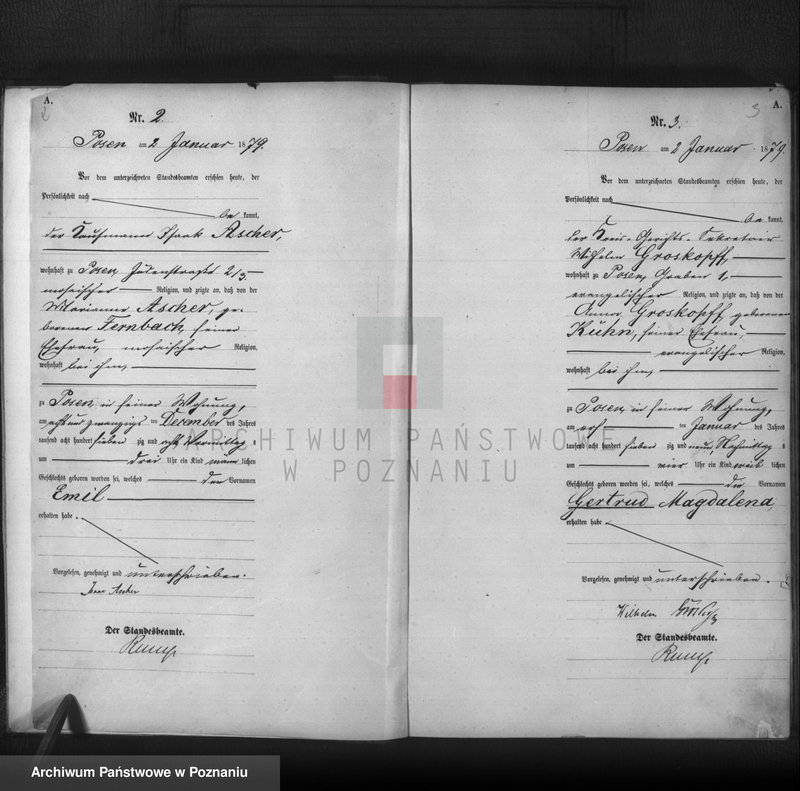 A.
2
Nr. 2.
Posen am 2 Januar 1879.
Vor dem unterzeichneten Standesbeamten erschien heute, der
Persönlichkeit nach
be kannt,
der Kaufmann Isaak Ascher,
wohnhaft zu Posen, Judenstraße 2/3.
mosaischer Religion, und zeigte an, daß von der
Marianne Ascher, ge-
borenen Fernbach, seiner
Ehefrau, mosaischer Religion,
wohnhaft bei ihm,
zu Posen in seiner Wohnung,
am acht und zwanzigsten December des Jahres
tausend acht hundert sieben zig und acht Vormittag s
um drei Uhr ein Kind männ lichen
Geschlechts geboren worden sei, welches den Vornamen
Emil
erhalten habe.
Vorgelesen, genehmigt und unterschrieben.
Isaac Ascher
Der Standesbeamte.
A.
3
Nr. 3.
Posen am 2 Januar 1879.
Vor dem unterzeichneten Standesbeamten erschien heute, der
Persönlichkeit nach
be kannt,
der Kreis-Gerichts-Sekretair
Wilhelm Groskopff,
wohnhaft zu Posen, Graben 1,
evangelischer Religion, und zeigte an, daß von der
Anna Groskopff geborenen
Kuhn, seiner Ehefrau,
evangelischer Religion,
wohnhaft bei ihm,
zu Posen in seiner Wohnung,
am ersten Januar des Jahres
tausend acht hundert sieben zig und neun, Nachmittag s
um vier Uhr ein Kind weib lichen
Geschlechts geboren worden sei, welches die Vornamen
Gertrud Magdalena,
erhalten habe.
Vorgelesen, genehmigt und unterschrieben.
Wilhelm
Der Standesbeamte.
ARCHIWUM PAŃSTWOWE
W POZNANIU
Archiwum Państwowe w Poznaniu